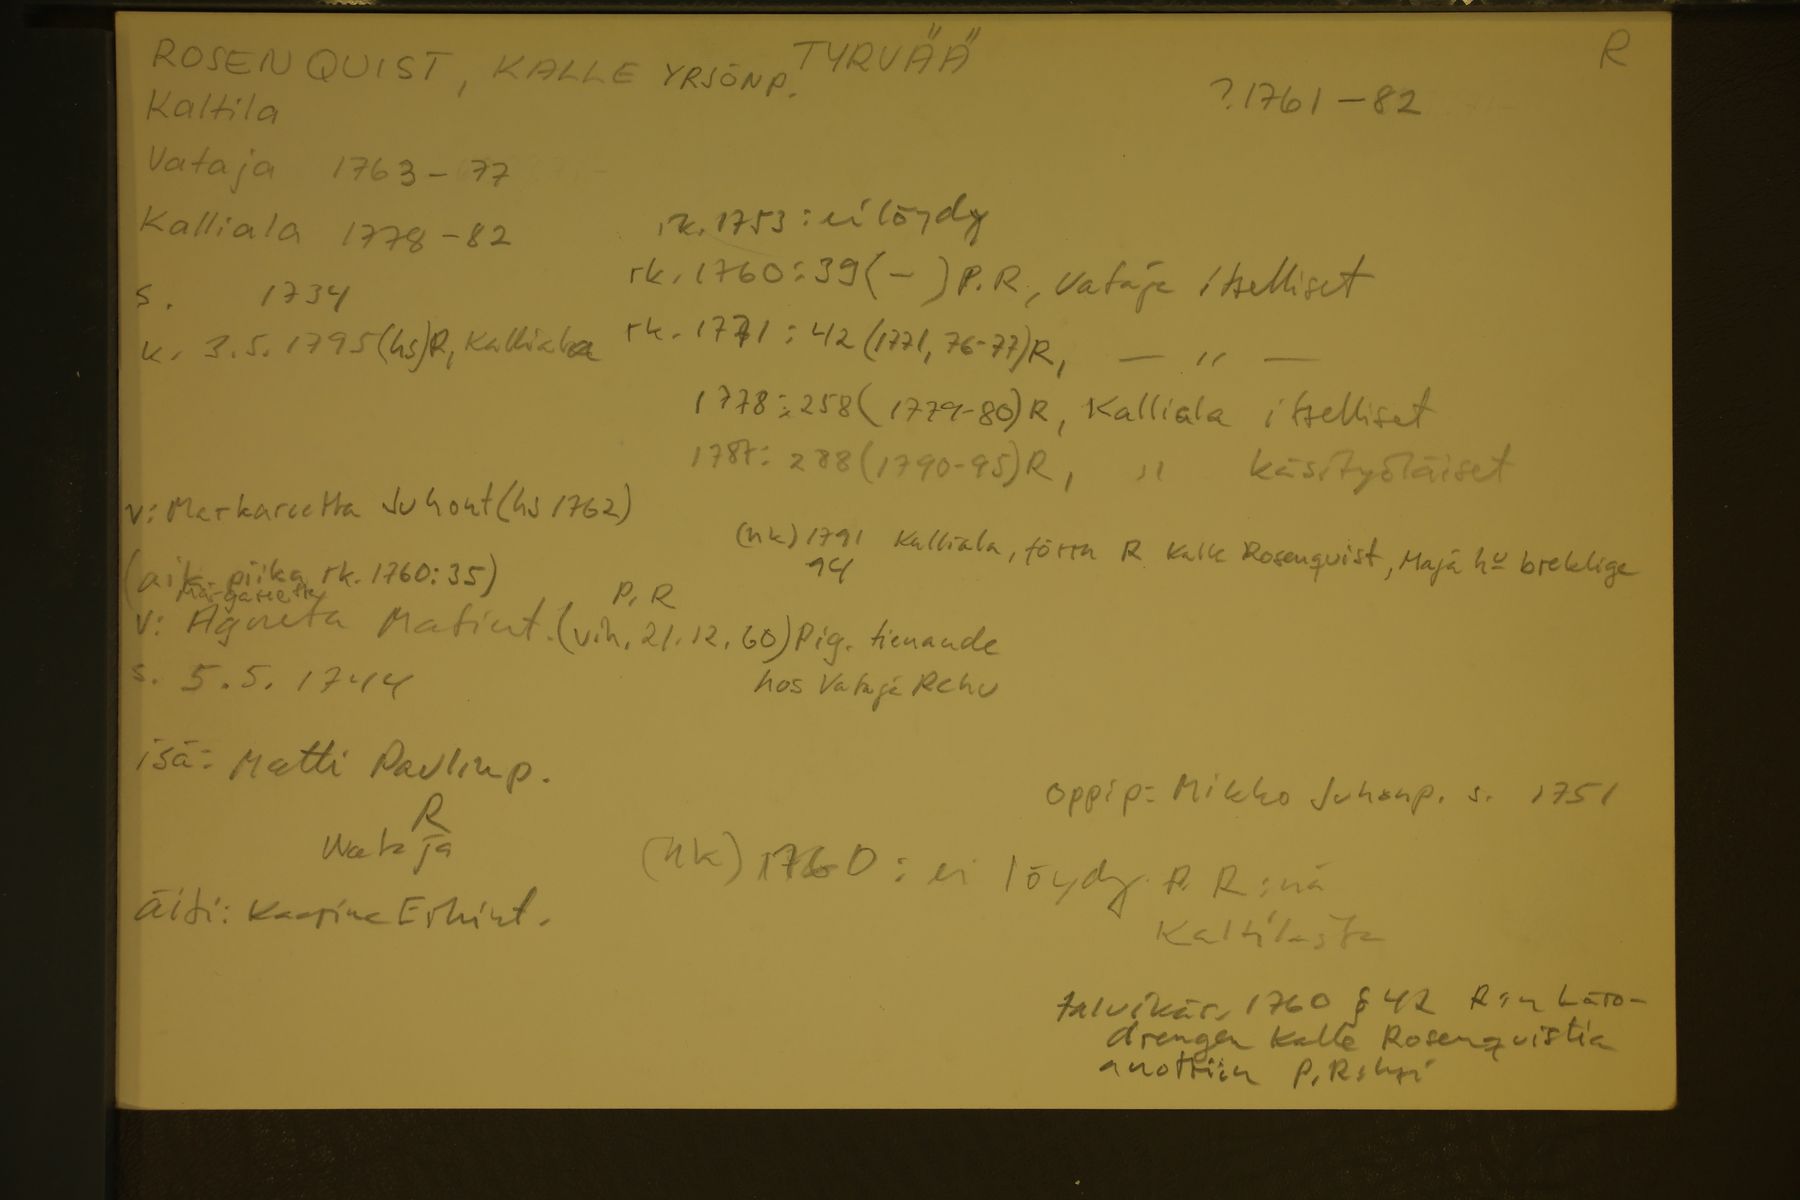 ROSENQUIST, KALLE YRJÖNP. TYRVÄÄ R
Kaltila ?.1761-82
Vataja 1763-77
Kalliala 1778-82
rk. 1753: ei löydy
rk. 1760: 39 (-) P.R, Vataja itselliset
s. 1734
k. 3.5.1795 (hs) R, Kalliala
rk. 1771: 42 (1771, 76-77) R, - " -
1778: 258 (1779-80) R, Kalliala itselliset
1787: 288 (1790-95) R, " käsityöläiset
v: Markareetta Juhont (hs 1762)
(rk) 1791 Kalliala, förra R Kalle Rosenquist, Maja hu breklige
94
(aik. piika rk. 1760: 35)
Margareetta
P.R
v: Agneta Matint. (vih. 21.12.60) Pig. tienande
hos Vataja Rehu
s. 5.5.1744
isä: Matti Paulinp.
R
Wataja
oppip: Mikko Juhonp. s. 1751
(rk) 1760: ei löydy P.R:nä
Kaltilasta
äiti: Kaarina Erkint.
talvikär. 1760 § 42 R:n Läro-
drengen Kalle Rosenquistia
anottiin P.R:ksi